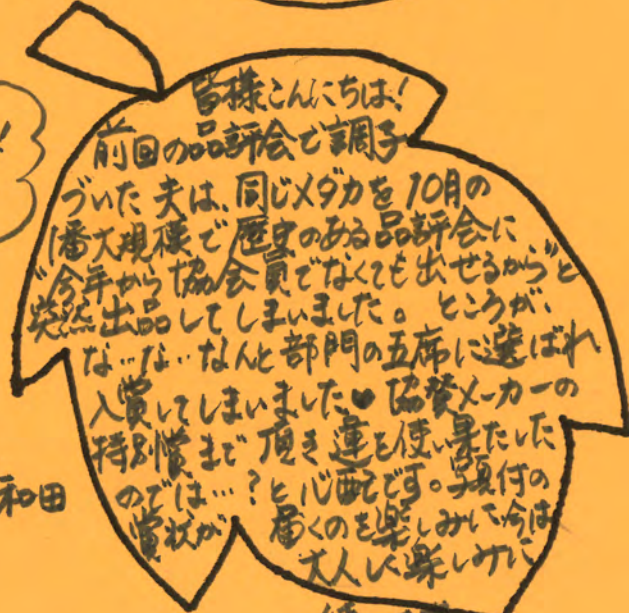 皆様こんにちは!
前回の品評会で調子
づいた夫は、同じメダカを10月の
1番大規様で歴史のある品評会に
"今年から協会員でなくても出せるから"と
突然出品してしまいました。ところが、
な…な…なんと部門の五席に選ばれ
入賞してしまいました♥協賛メーカーの
特別賞まで頂き運を使い果たした
のでは…?と心配です。額付の
賞状が届くのを楽しみに今は
大人しく楽しみに
和田